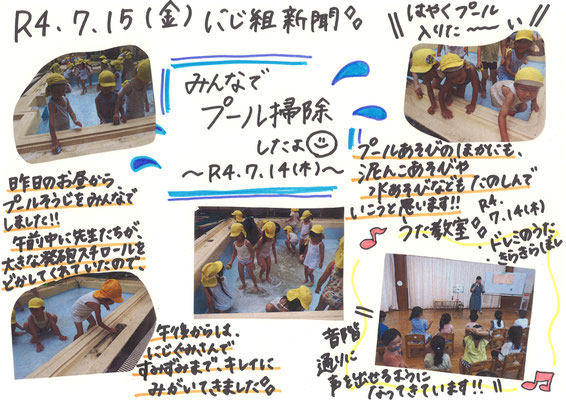 R4.7.15(金)にじ組新聞。
はやくプール
入りた〜〜い
みんなで
プール掃除
したよ
〜R4.7.14(木)〜
昨日のお昼から
プールそうじをみんなで
しました!!
午前中に先生たちが、
大きな発砲スチロールを
どかしてくれていたので、
午後からは、
にじぐみさんで
すみずみまで、キレイに
みがいてきました。
プールあそびのほかにも、
泥んこあそびや
水あそびなどもたのしんで
いこうと思います!!
うた教室。
R4.
7.14(木)
・ドレミのうた
・きらきらぼし
音階
通りに
声を出せるように
なってきています!!